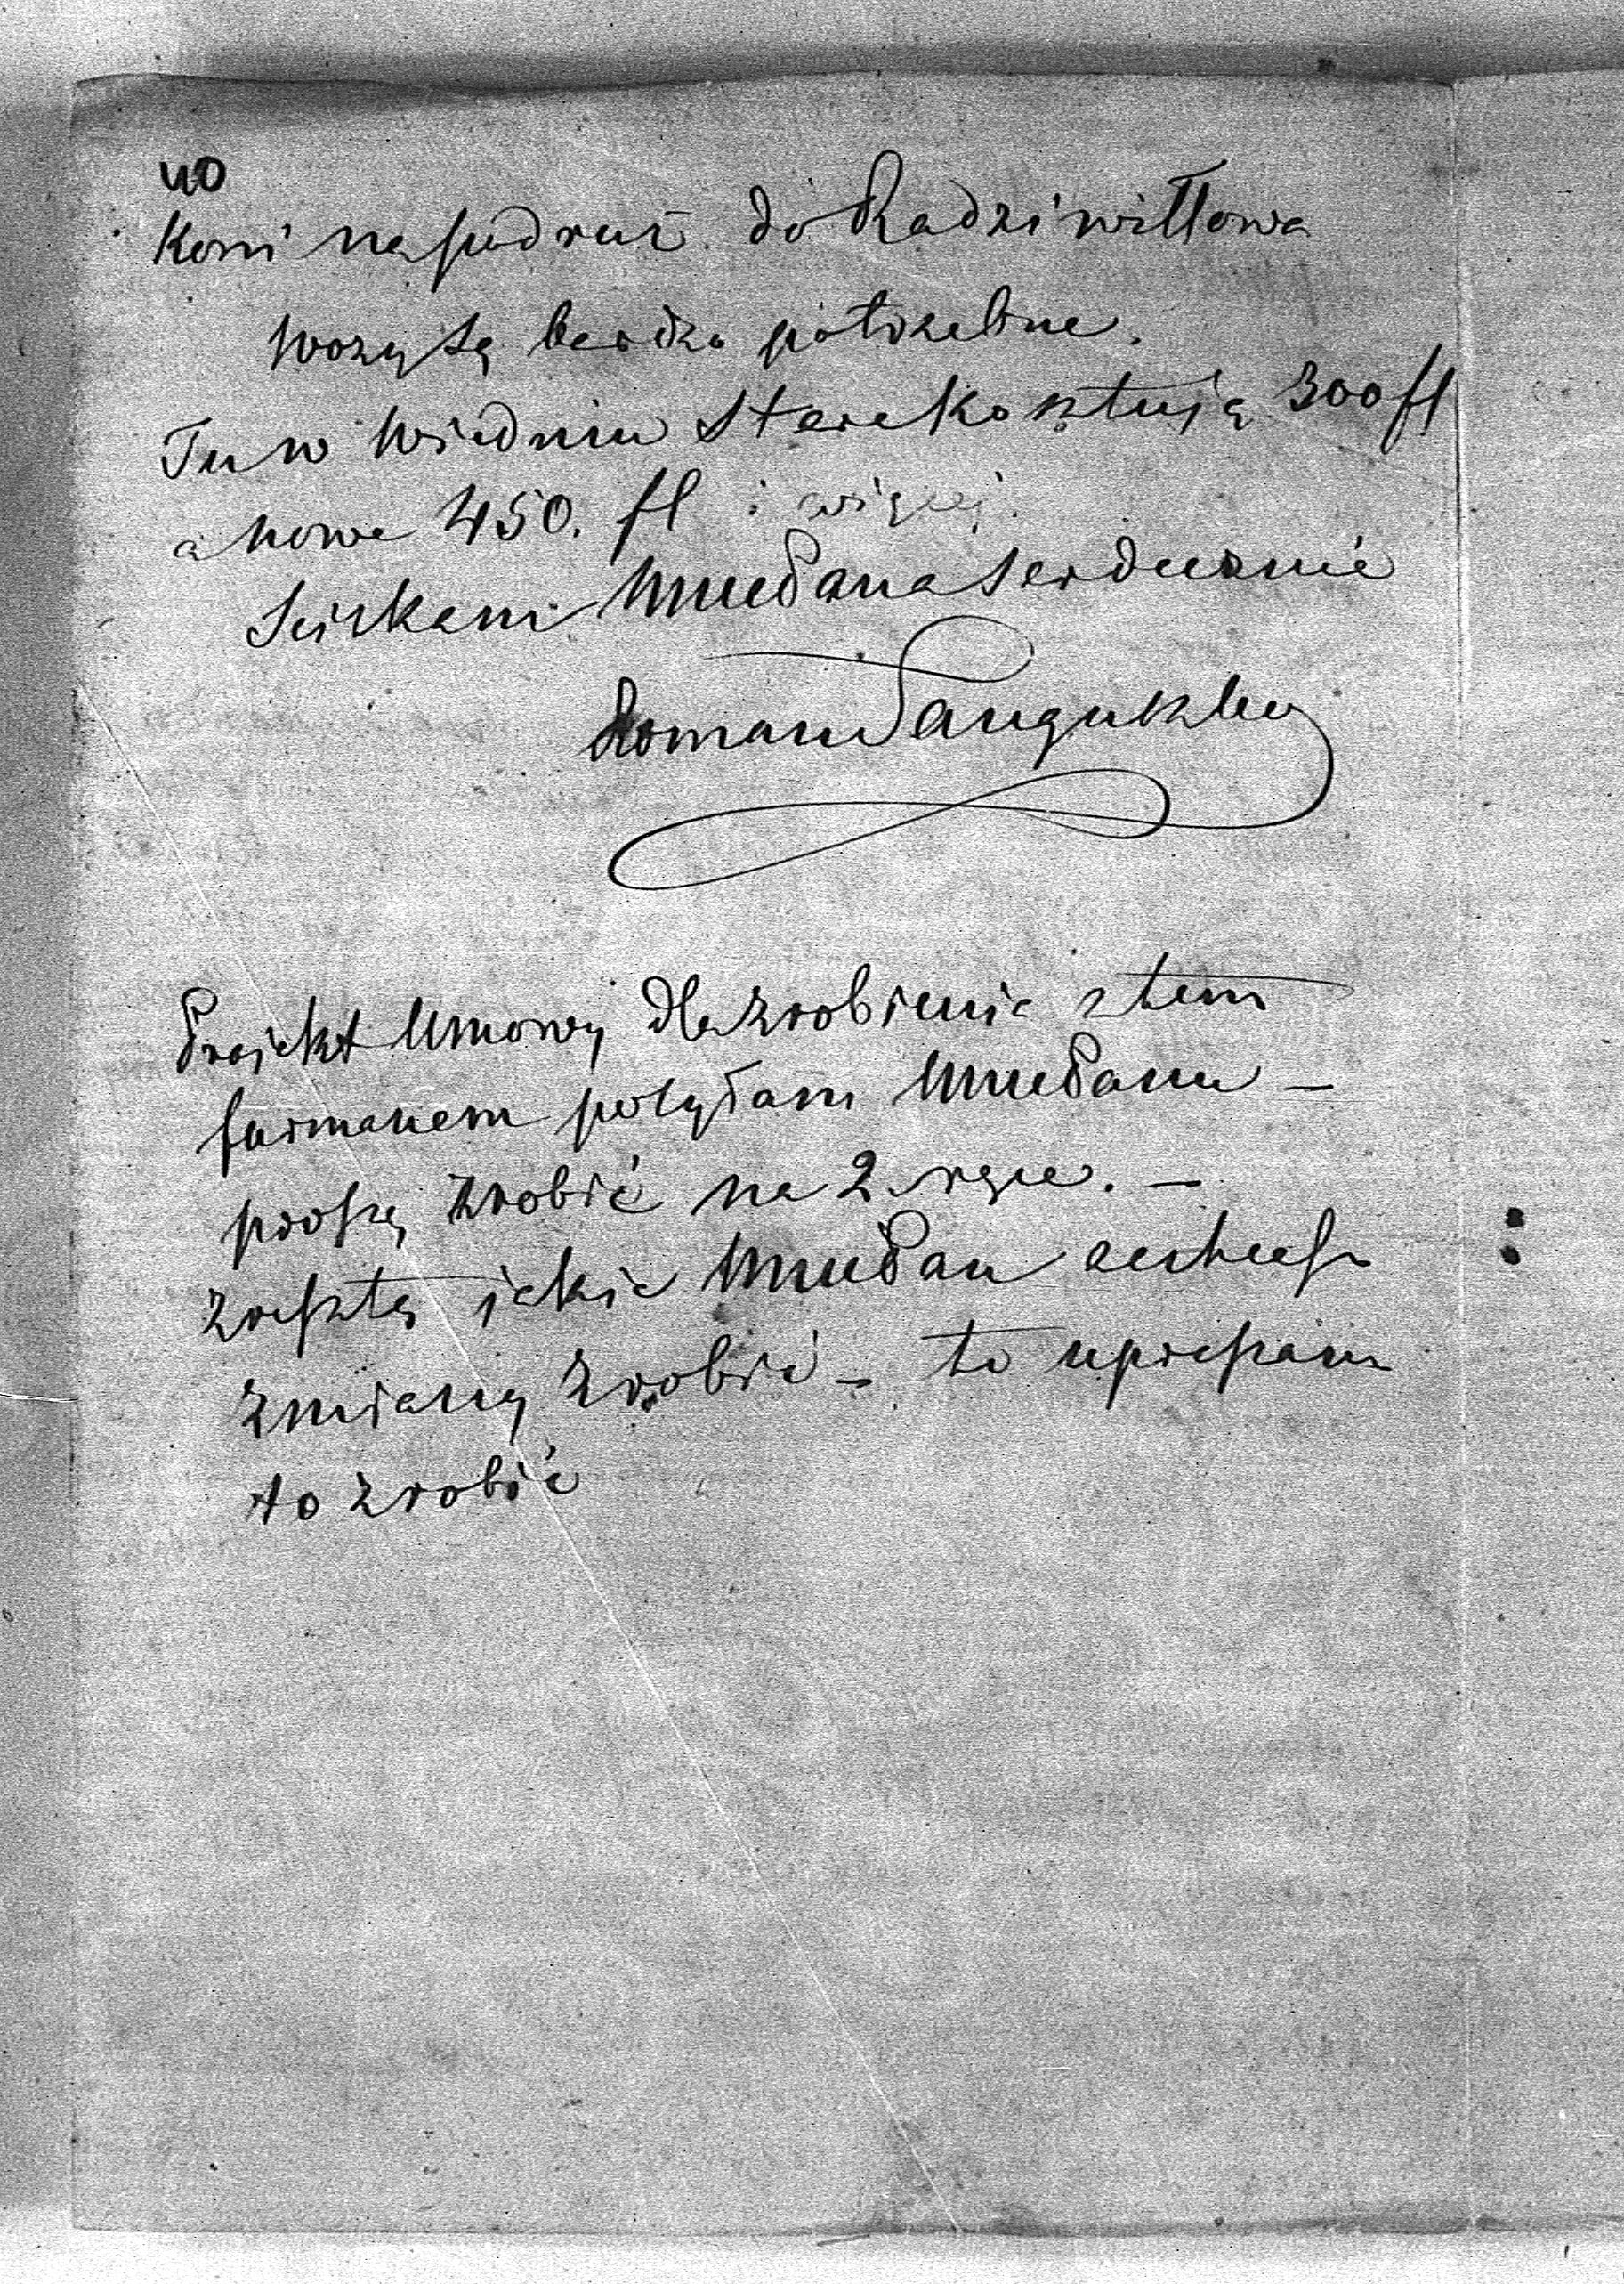 40
Koni na podruż do Radziwiłłowa
wozy są bardzo potrzebne.
Tu w Wiedniu stare kosztują 300 fl
a nowe 450. fl i więcej.
Sciskam WmcPana serdecznie
Roman Sanguszko
Projekt Umowy dla zrobienia z tem
furmanem posyłam WmcPanu –
proszę zrobić na 2. ręce. –
zresztą jakie WmcPan zechcesz
zmiany zrobić – to upraszam
to zrobić